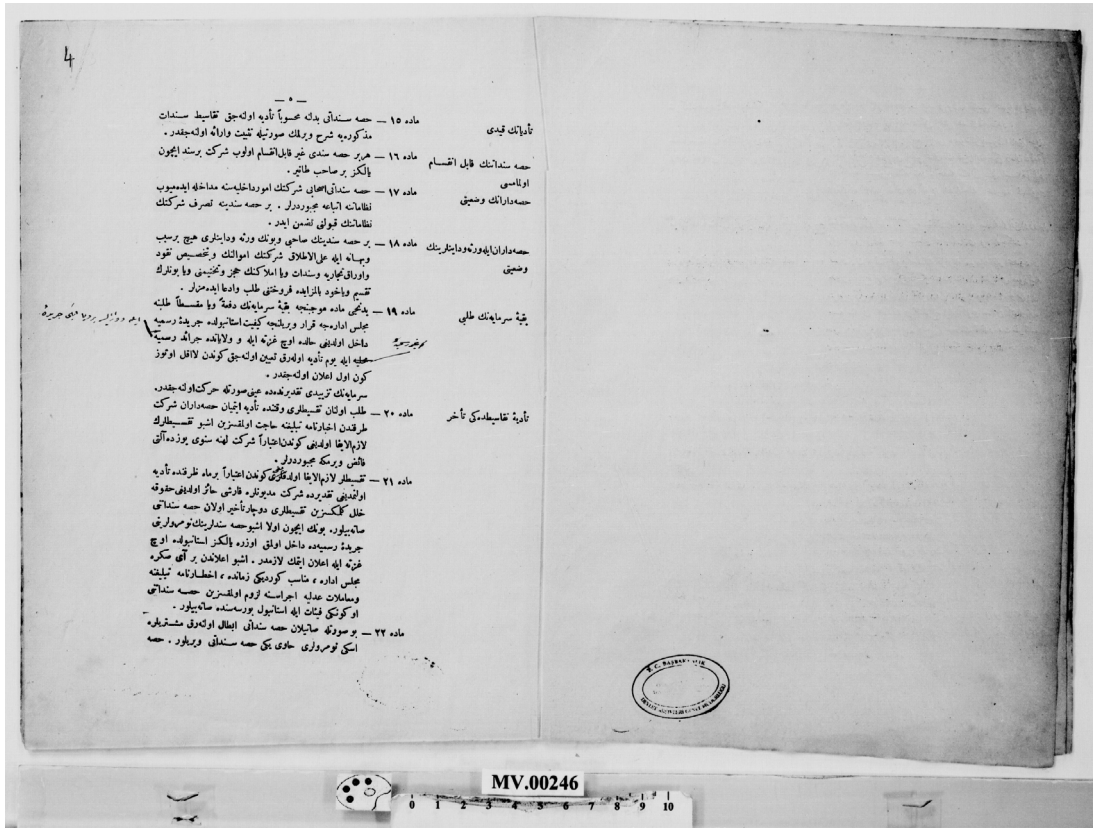 4
— ٥ —
تأدیاتك قیدی
ماده ١٥ — حصه سنداتی بدلنه محسوباً تأدیه اولنه‌جق تقاسیط سندات
مذکوره‌یه شرح ویرلمك صورتیله تثبیت وارائه اولنه‌جقدر .
حصه سنداتنك قابل انقسام
اولمامسی
ماده ١٦ — هربر حصه سندی غیر قابل‌انقسام اولوب شرکت برسند ایچون
یالکز بر صاحب طانیر .
حصه‌دارانك وضعیتی
ماده ١٧ — حصه سنداتی‌اصحابی شرکتك امورداخلیه‌سنه مداخله ایده‌میوب
نظاماتنه اتباعه مجبوردرلر . بر حصه سندینه تصرف شرکتك
نظاماتنك قبولنی تضمن ایدر .
حصه‌داران‌ایله‌ورثه‌وداینلرینك
وضعیتی
ماده ١٨ — بر حصه سندینك صاحبی وبونك ورثه وداینلری هیچ برسبب
وبهانه ایله علی‌الاطلاق شرکتك اموالنك وتخصیص نقود
واوراق‌تجاریه وسندات ویا املاکنك حجز وتختیمنی ویا بونلرك
تقسیم ویاخود بالمزایده فروختنی طلب وادعا ایده‌مزلر .
بقیهٔ سرمایه‌نك طلبی
ماده ١٩ — یدنجی ماده موجبنجه بقیهٔ سرمایه‌نك دفعةً ویا مقسطاً طلبنه
مجلس اداره‌جه قرار ویریلنجه کیفیت استانبولده جریدهٔ رسمیه
داخل اولدیغی حالده اوچ غزته ایله و ولایاتده جرائد رسمیهٔ
محلیه ایله یوم تأدیه اوله‌رق تعیین اولنه‌جق کوندن لااقل اوتوز
کون اول اعلان اولنه‌جقدر .
سرمایه‌نك تزییدی تقدیرنده‌ده عینی‌صورتله حرکت‌اولنه‌جقدر.
تأدیهٔ تقاسیطده‌کی تأخر
ماده ٢٠ — طلب اولنان تقسیطلری وقتنده تأدیه ایتمیان حصه‌داران شرکت
طرفندن اخبارنامه تبلیغنه حاجت اولمقسزین اشبو تقسیطلرك
لازم‌الایفا اولدیغی کوندن‌اعتباراً شرکت لهنه سنوی یوزده‌آلتی
فائض ویرمکه مجبوردرلر .
ماده ٢١ — تقسیطلر لازم‌الایفا اولدقلری کوندن اعتباراً برماه ظرفنده تأدیه
اولنمدیغی تقدیرده شرکت مدیونلره قارشی حائز اولدیغی حقوقه
خلل کلمکسزین تقسیطلری دوچارتأخیر اولان حصه سنداتنی
صاته‌بیلور. بونك ایچون اولا اشبوحصه سندلرینك‌نومرولرینی
جریدهٔ رسمیه‌ده داخل اولمق اوزره یالکز استانبولده اوچ
غزته ایله اعلان ایتمك لازمدر . اشبو اعلاندن بر آی صکره
مجلس اداره ، مناسب کوردیکی زمانده ، اخطارنامه تبلیغنه
ومعاملات عدلیه اجراسنه لزوم اولمقسزین حصه سنداتنی
اوکونکی فیئات ایله استانبول بورسه‌سنده صاته‌بیلور .
ماده ٢٢ — بو صورتله صاتیلان حصه سنداتی ابطال اولنه‌رق مشتریلره
اسکی نومرولری حاوی یکی حصه سنداتی ویریلور . حصه
T. C. BAŞBAKANLIK
MV.00246
0 1 2 3 4 5 6 7 8 9 10